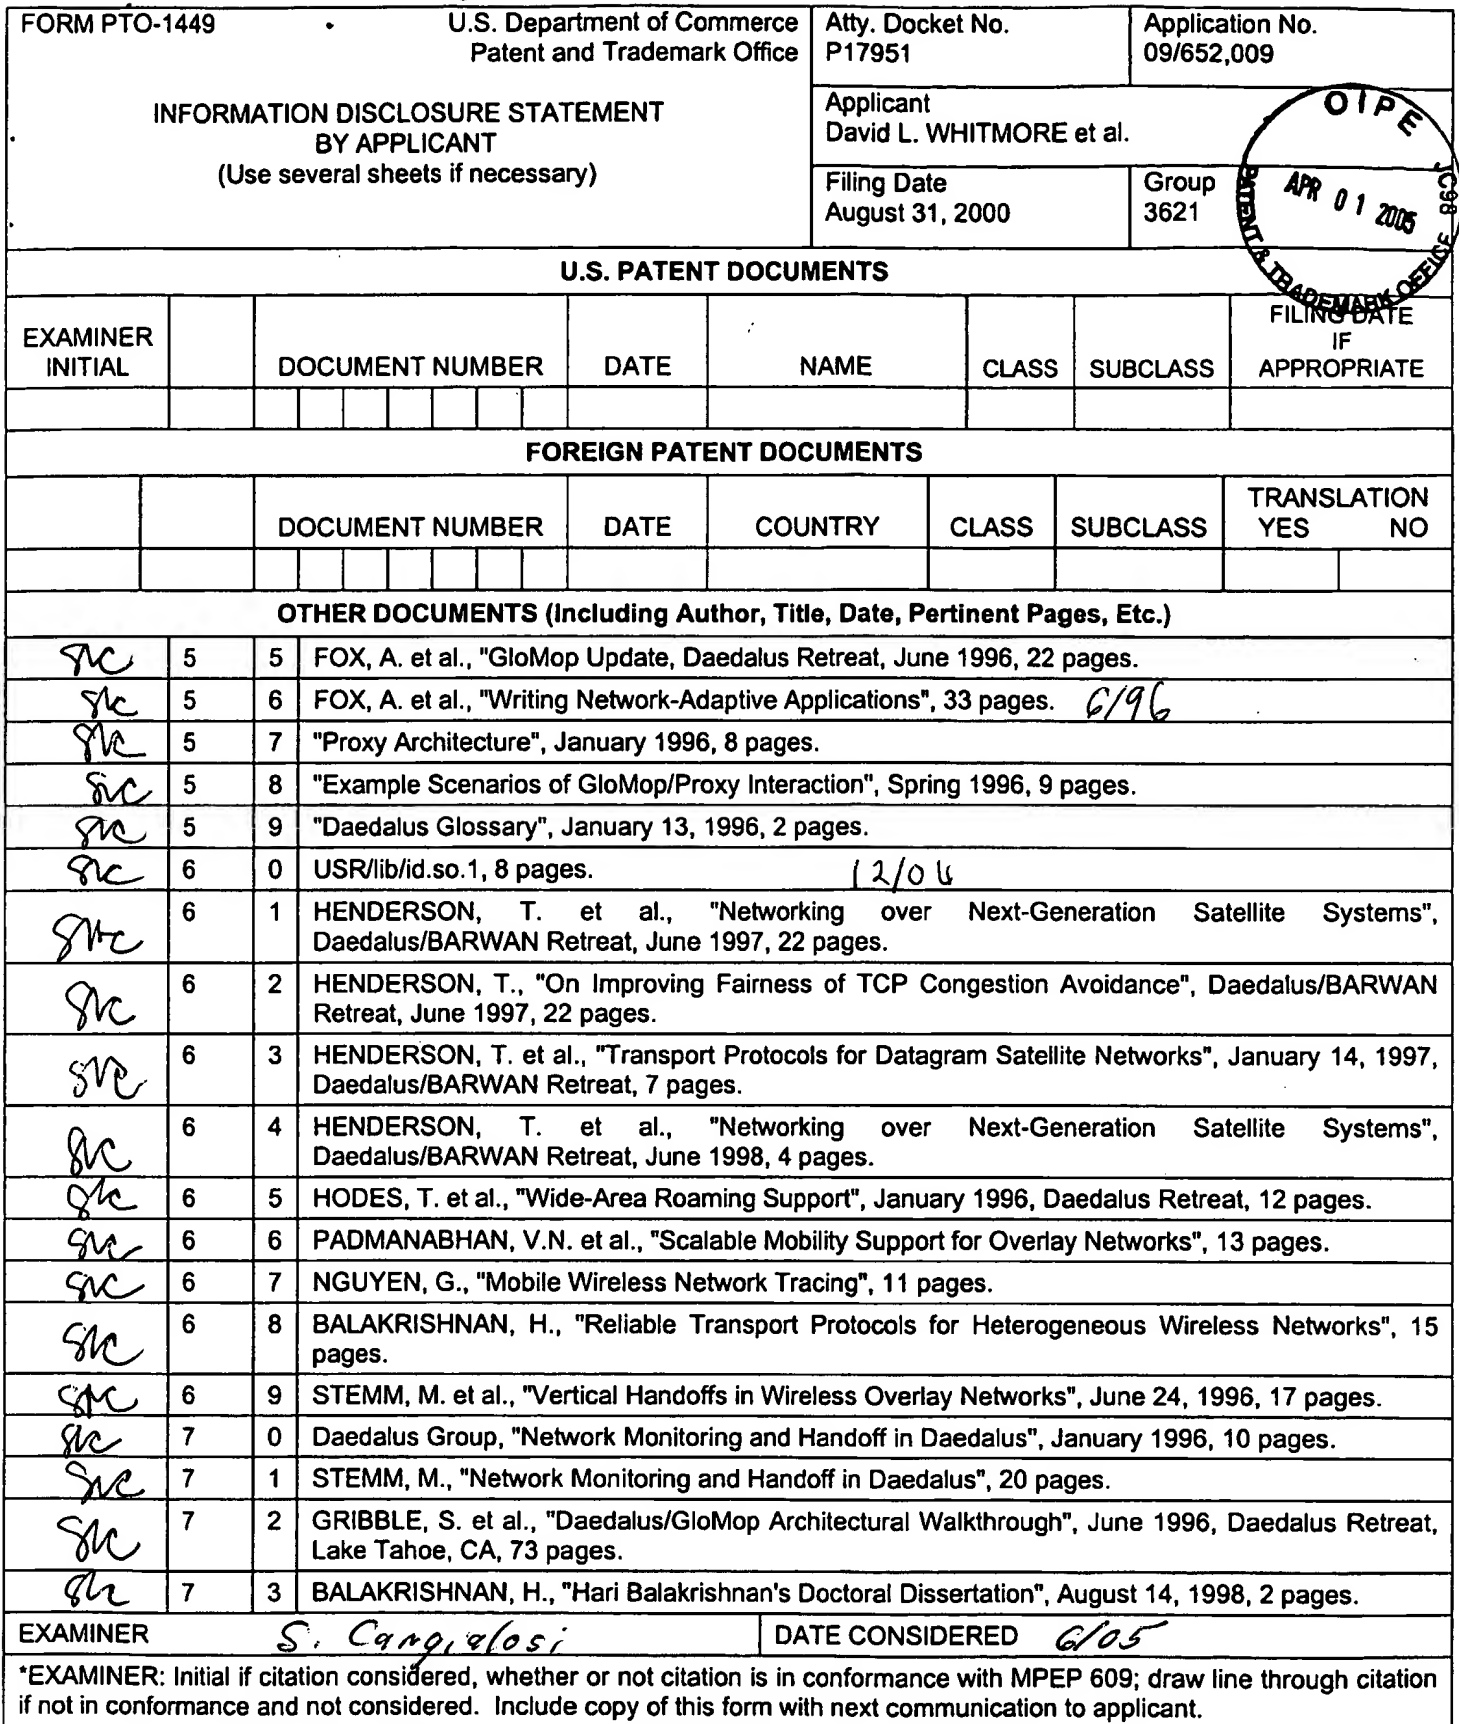 FORM PTO-1449
U.S. Department of Commerce
Patent and Trademark Office
INFORMATION DISCLOSURE STATEMENT
BY APPLICANT
(Use several sheets if necessary)
Atty. Docket No.
P17951
Application No.
09/652,009
Applicant
David L. WHITMORE et al.
Filing Date
August 31, 2000
Group
3621
OIPE
JC98
APR 01 2005
PATENT & TRADEMARK OFFICE
U.S. PATENT DOCUMENTS
EXAMINER INITIAL
DOCUMENT NUMBER
DATE
NAME
CLASS
SUBCLASS
FILING DATE
IF
APPROPRIATE
FOREIGN PATENT DOCUMENTS
DOCUMENT NUMBER
DATE
COUNTRY
CLASS
SUBCLASS
TRANSLATION
YES NO
OTHER DOCUMENTS (Including Author, Title, Date, Pertinent Pages, Etc.)
SVC 5 5 FOX, A. et al., "GloMop Update, Daedalus Retreat, June 1996, 22 pages.
SVC 5 6 FOX, A. et al., "Writing Network-Adaptive Applications", 33 pages. 6/96
SVC 5 7 "Proxy Architecture", January 1996, 8 pages.
SVC 5 8 "Example Scenarios of GloMop/Proxy Interaction", Spring 1996, 9 pages.
SVC 5 9 "Daedalus Glossary", January 13, 1996, 2 pages.
SVC 6 0 USR/lib/id.so.1, 8 pages. 12/04
SVC 6 1 HENDERSON, T. et al., "Networking over Next-Generation Satellite Systems",
Daedalus/BARWAN Retreat, June 1997, 22 pages.
SVC 6 2 HENDERSON, T., "On Improving Fairness of TCP Congestion Avoidance", Daedalus/BARWAN
Retreat, June 1997, 22 pages.
SVC 6 3 HENDERSON, T. et al., "Transport Protocols for Datagram Satellite Networks", January 14, 1997,
Daedalus/BARWAN Retreat, 7 pages.
SVC 6 4 HENDERSON, T. et al., "Networking over Next-Generation Satellite Systems",
Daedalus/BARWAN Retreat, June 1998, 4 pages.
SVC 6 5 HODES, T. et al., "Wide-Area Roaming Support", January 1996, Daedalus Retreat, 12 pages.
SVC 6 6 PADMANABHAN, V.N. et al., "Scalable Mobility Support for Overlay Networks", 13 pages.
SVC 6 7 NGUYEN, G., "Mobile Wireless Network Tracing", 11 pages.
SVC 6 8 BALAKRISHNAN, H., "Reliable Transport Protocols for Heterogeneous Wireless Networks", 15
pages.
SVC 6 9 STEMM, M. et al., "Vertical Handoffs in Wireless Overlay Networks", June 24, 1996, 17 pages.
SVC 7 0 Daedalus Group, "Network Monitoring and Handoff in Daedalus", January 1996, 10 pages.
SVC 7 1 STEMM, M., "Network Monitoring and Handoff in Daedalus", 20 pages.
SVC 7 2 GRIBBLE, S. et al., "Daedalus/GloMop Architectural Walkthrough", June 1996, Daedalus Retreat,
Lake Tahoe, CA, 73 pages.
SVC 7 3 BALAKRISHNAN, H., "Hari Balakrishnan's Doctoral Dissertation", August 14, 1998, 2 pages.
EXAMINER S. Cangialosi
DATE CONSIDERED 6/05
*EXAMINER: Initial if citation considered, whether or not citation is in conformance with MPEP 609; draw line through citation
if not in conformance and not considered. Include copy of this form with next communication to applicant.